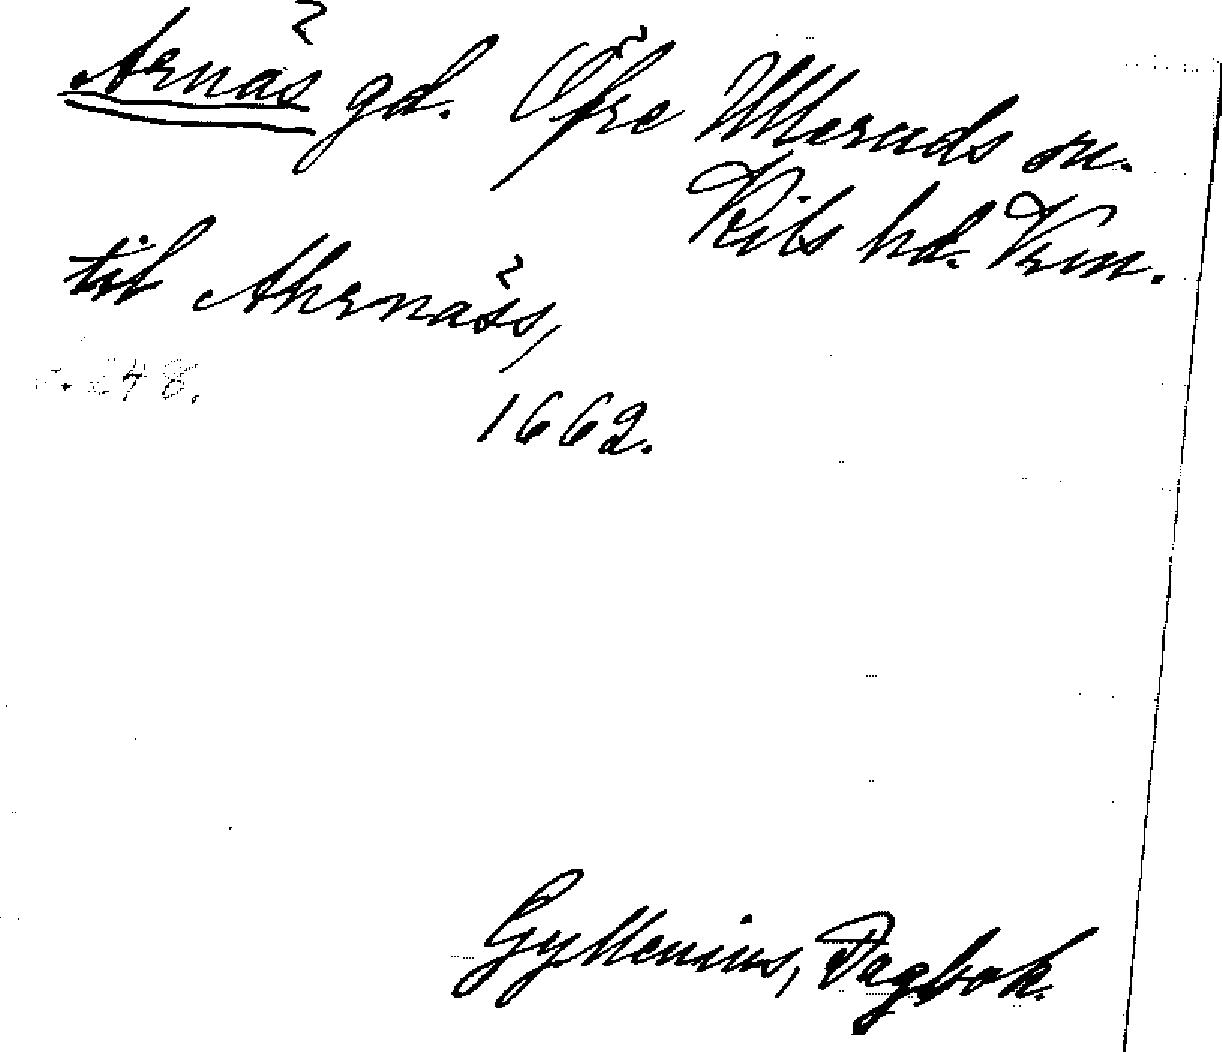 Arnäs gd. Öfre Ulleruds sn.
Kils hd. Vrm.
til Ahrnäss,
s. 248.
1662.
Gyllenius, Dagbok.